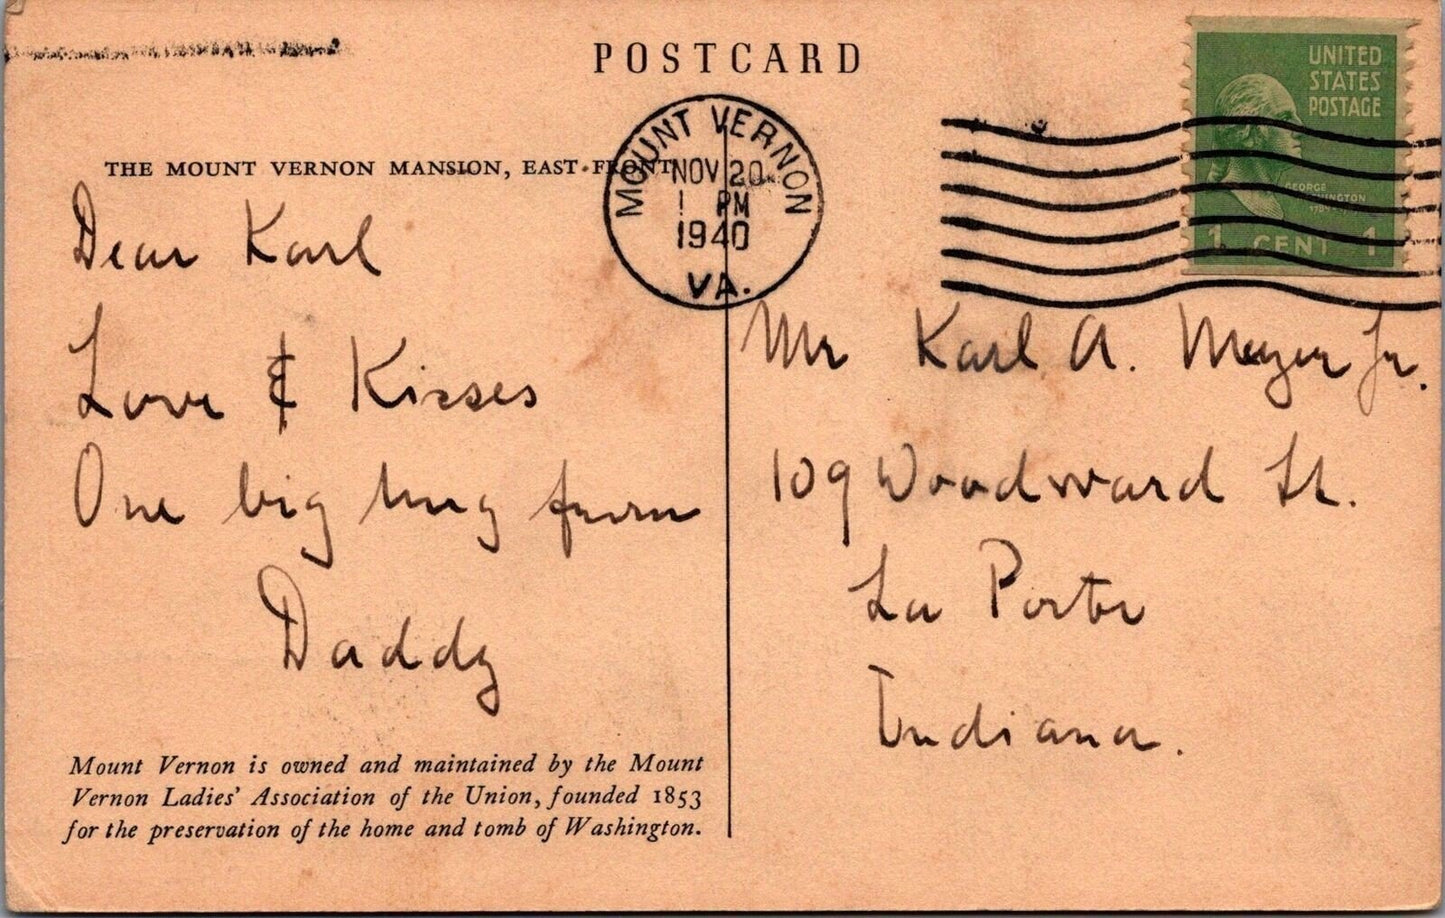 POSTCARD
UNITED
STATES
POSTAGE
GEORGE
WASHINGTON
1 CENT 1
MOUNT VERNON
NOV 20
1 PM
1940
VA.
THE MOUNT VERNON MANSION, EAST FRONT
Dear Karl
Love & Kisses
One big hug from
Daddy
Mount Vernon is owned and maintained by the Mount
Vernon Ladies' Association of the Union, founded 1853
for the preservation of the home and tomb of Washington.
Mr Karl A. Meyer Jr.
109 Woodward St.
La Porte
Indiana.